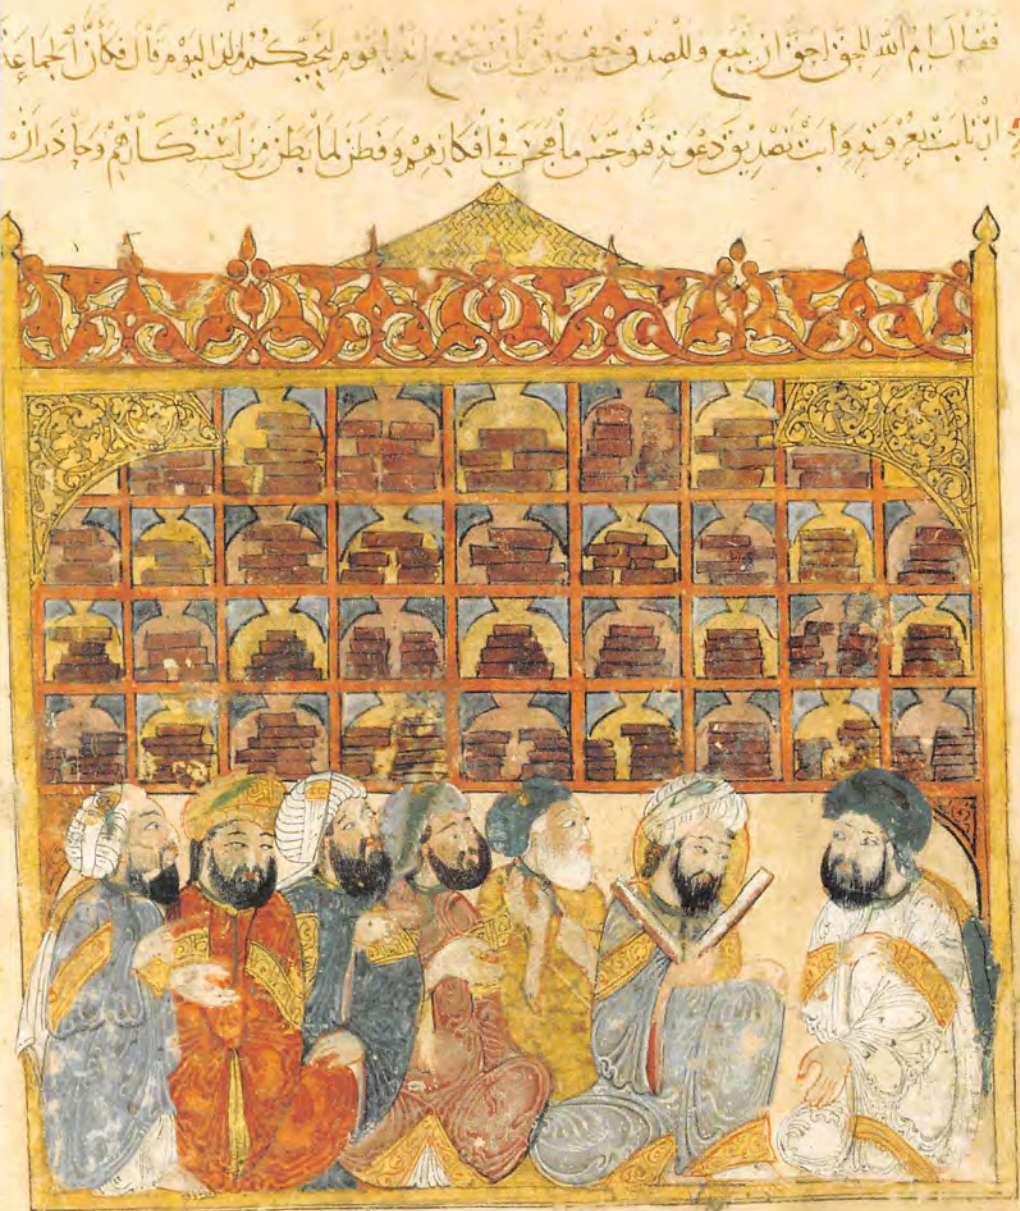 فقال ايم الله للحق احق ان يتبع وللصدق حقيق بأن يستمع انه يا قوم لنجيكم مذ اليوم قال فكأن الجماعة
ارتابت بعزوته وابت تصديق دعوته فتوجس ما هجس في افكارهم وفطن لما بطن من استنكارهم وحاذر ان